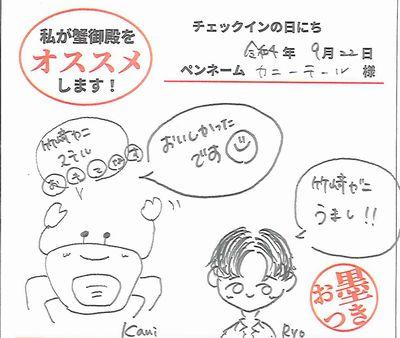 私が蟹御殿を
オススメ
します！
チェックインの日にち
令和4年 9月22日
ペンネーム カニーテール 様
竹崎ガニ
ステル
おもてなす
おいしかった
です
竹崎ガニ
うまし!!
墨
おつき
Kani
Ryo